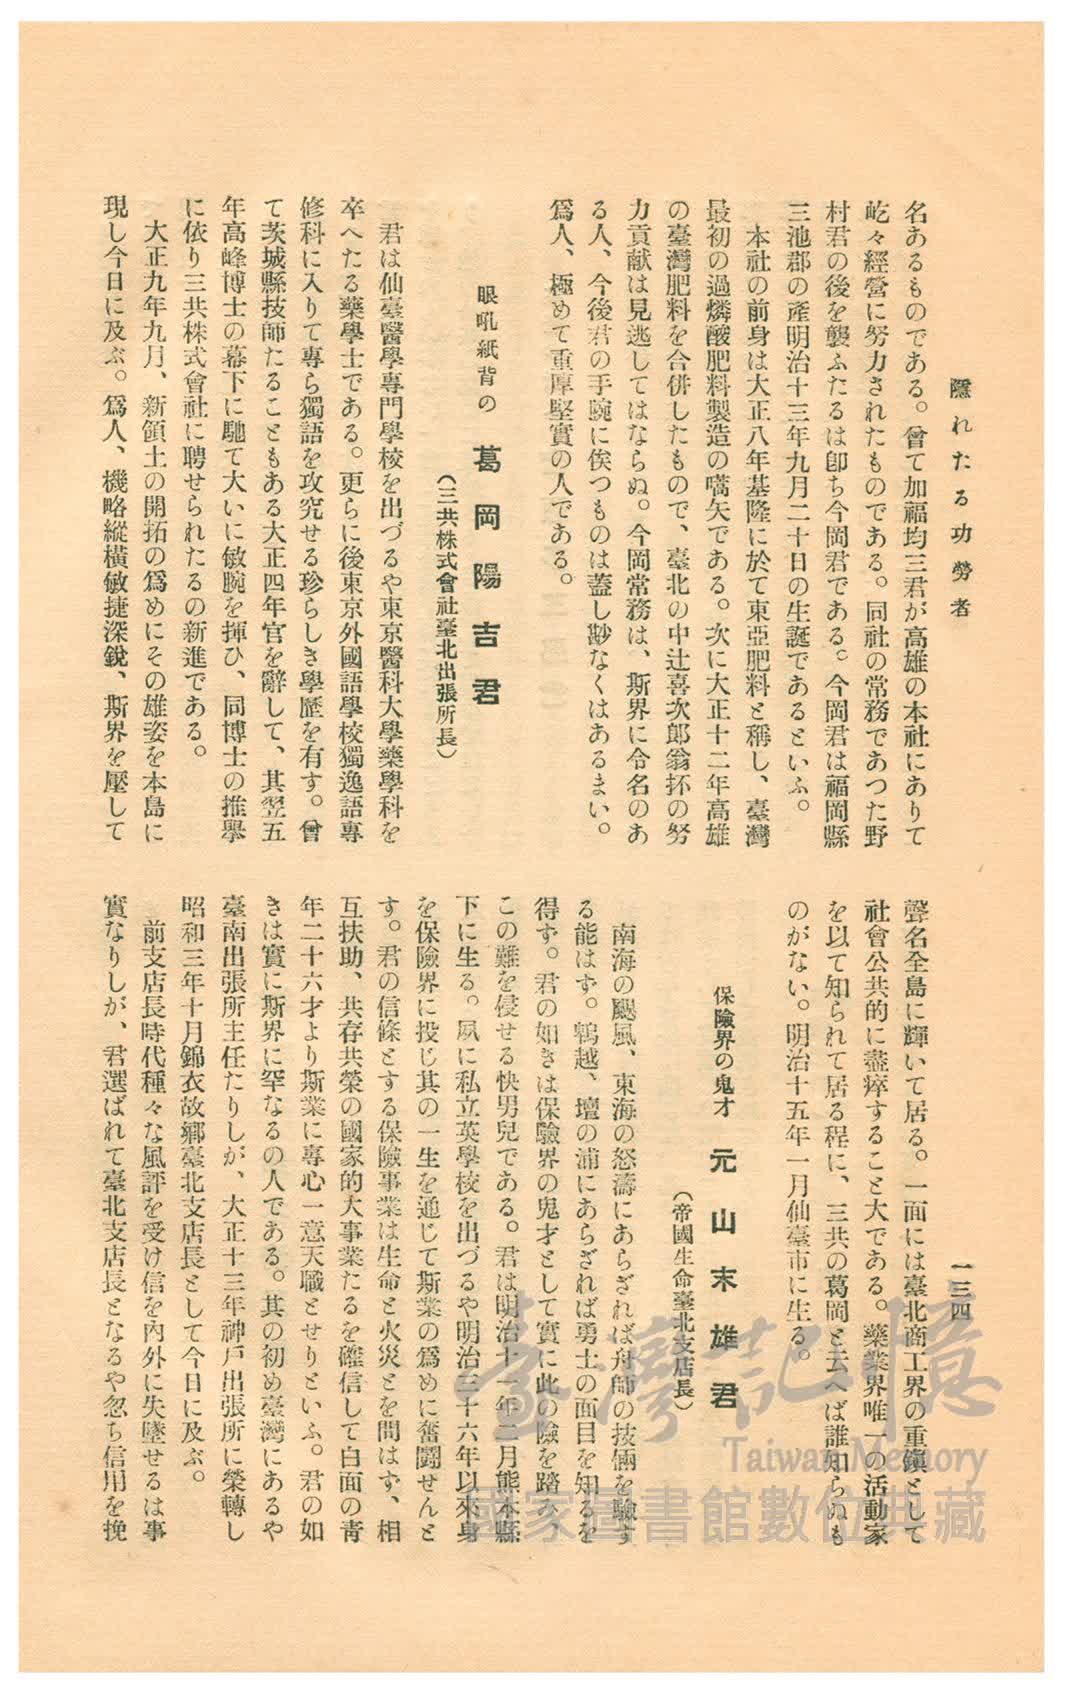 隱れたる功勞者
一三四
名あるものである。曾て加福均三君が高雄の本社にありて
屹々經營に努力されたものである。同社の常務であつた野
村君の後を襲ふたるは卽ち今岡君である。今岡君は福岡縣
三池郡の產明治十三年九月二十日の生誕であるといふ。
本社の前身は大正八年基隆に於て東亞肥料と稱し、臺灣
最初の過燐酸肥料製造の嚆矢である。次に大正十二年高雄
の臺灣肥料を合併したもので、臺北の中辻喜次郎翁抔の努
力貢献は見逃してはならぬ。今岡常務は、斯界に令名のあ
る人、今後君の手腕に俟つものは蓋し尠なくはあるまい。
爲人、極めて重厚堅實の人である。
眼吼紙背の 葛岡陽吉君
(三共株式會社臺北出張所長)
君は仙臺醫學專門學校を出づるや東京醫科大學藥學科を
卒へたる藥學士である。更らに後東京外國語學校獨逸語專
修科に入りて專ら獨語を攻究せる珍らしき學歷を有す。曾
て茨城縣技師たることもある大正四年官を辭して、其翌五
年高峰博士の幕下に馳て大いに敏腕を揮ひ、同博士の推擧
に依り三共株式會社に聘せられたるの新進である。
大正九年九月、新領土の開拓の爲めにその雄姿を本島に
現し今日に及ぶ。爲人、機略縱橫敏捷深銳、斯界を壓して
聲名全島に輝いて居る。一面には臺北商工界の重鎭として
社會公共的に盡瘁すること大である。藥業界唯一の活動家
を以て知られて居る程に、三共の葛岡と云へば誰知らぬも
のがない。明治十五年一月仙臺市に生る。
保險界の鬼才 元山末雄君
(帝國生命臺北支店長)
南海の颶風、東海の怒濤にあらざれば舟師の技倆を驗す
る能はず。鵯越、壇の浦にあらざれば勇士の面目を知るを
得ず。君の如きは保險界の鬼才として實に此の險を踏み、
この難を侵せる快男兒である。君は明治十一年二月熊本縣
下に生る。夙に私立英學校を出づるや明治三十六年以來身
を保險界に投じ其の一生を通じて斯業の爲めに奮鬪せんと
す。君の信條とする保險事業は生命と火災とを問はず、相
互扶助、共存共榮の國家的大事業たるを確信して白面の靑
年二十六才より斯業に專心一意天職とせりといふ。君の如
きは實に斯界に罕なるの人である。其の初め臺灣にあるや
臺南出張所主任たりしが、大正十三年神戶出張所に榮轉し
昭和三年十月錦衣故鄕臺北支店長として今日に及ぶ。
前支店長時代種々な風評を受け信を內外に失墜せるは事
實なりしが、君選ばれて臺北支店長となるや忽ち信用を挽
臺灣記憶
Taiwan Memory
國家圖書館數位典藏